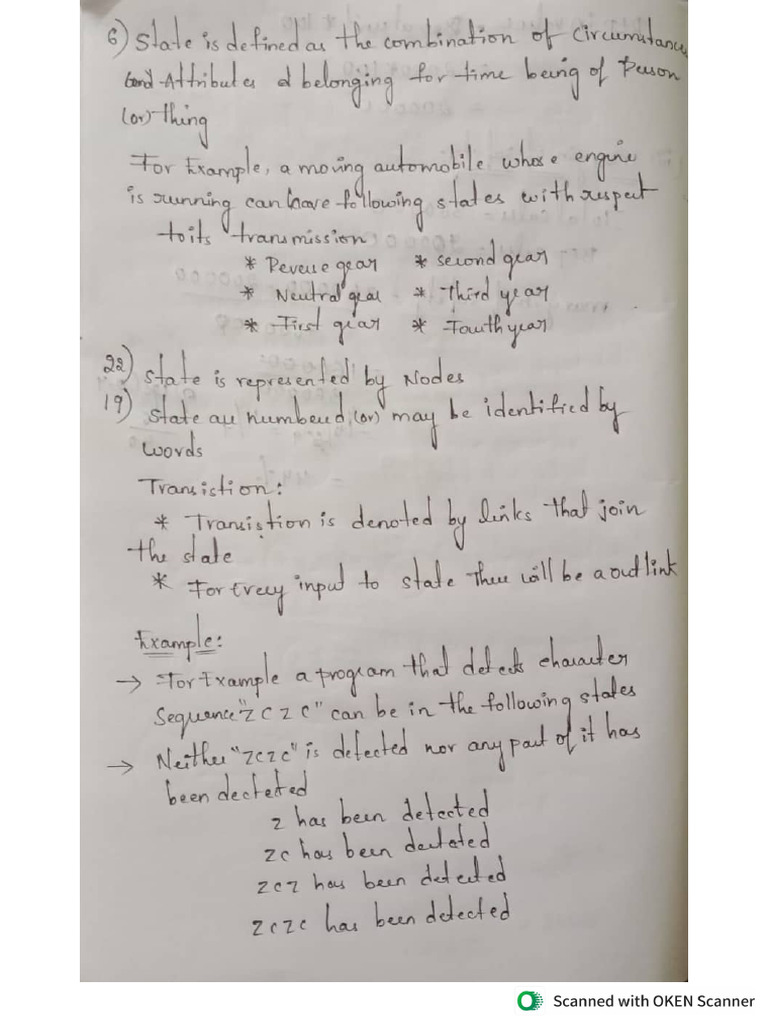 6) State is defined as the combination of Circumstances
and Attributes d belonging for time being of Person
(or) thing
For Example, a moving automobile whose engine
is running can have following states with respect
to its transmission
* Reverse gear * second gear
* Neutral gear * Third year
* First gear * Fourth year
22) State is represented by Nodes
19) State are numbered (or) may be identified by
words
Transistion:
* Transistion is denoted by links that join
the state
* For Every input to state there will be a outlink
Example:
→ For Example a program that detects character
Sequence "z c z c" can be in the following states
→ Neither "zczc" is detected nor any part of it has
been decteted
z has been detected
zc has been dectated
zcz has been detected
zczc has been detected
Scanned with OKEN Scanner